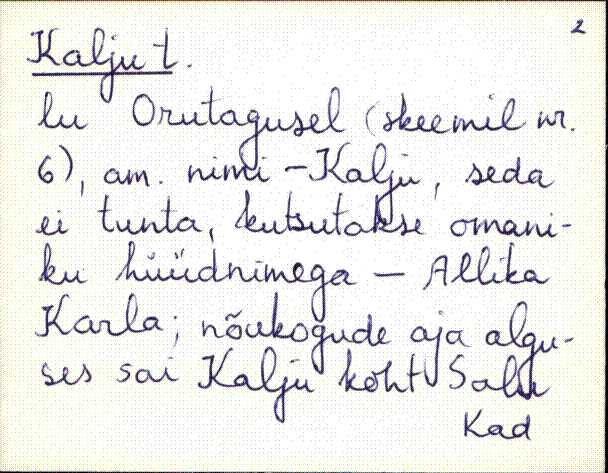 2
Kalju t.
lu Orutagusel (skeemil nr.
6), am. nimi - Kalju, seda
ei tunta, kutsutakse omani-
ku hüüdnimega - Allika
Karla; nõukogude aja algu-
ses sai Kalju koht Salu
Kad